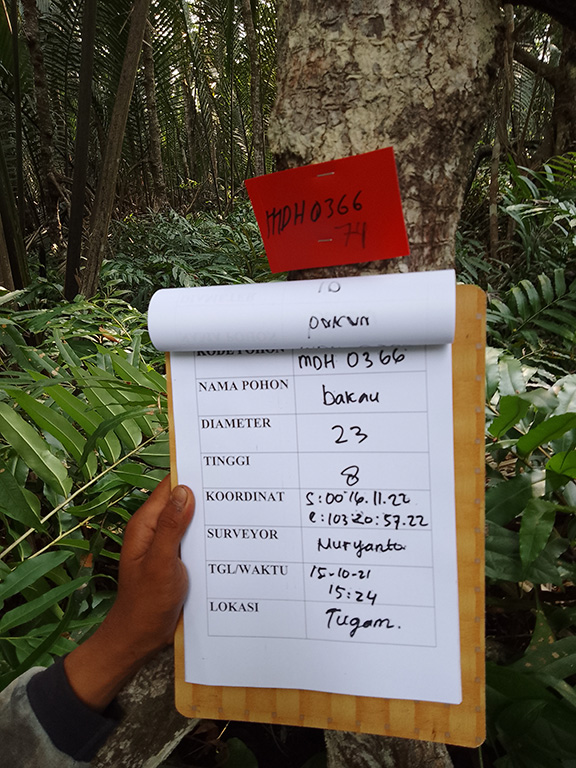 MDH 0366
74
KODE POHON MDH 0366
NAMA POHON bakau
DIAMETER 23
TINGGI 8
KOORDINAT S:00.16.11.22
e:103:20:57.22
SURVEYOR Muryanto
TGL/WAKTU 15-10-21
15:24
LOKASI Tugam.